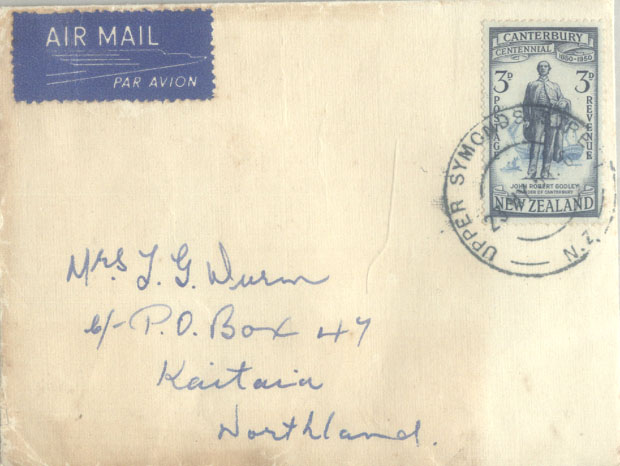 AIR MAIL
PAR AVION
CANTERBURY
CENTENNIAL 1850-1950
3D 3D
POSTAGE
REVENUE
JOHN ROBERT GODLEY
FOUNDER OF CANTERBURY
NEW ZEALAND
UPPER SYMONDS
N.Z.
Mrs J. G. Wurm
c/- P.O. Box 47
Kaitaia
Northland.